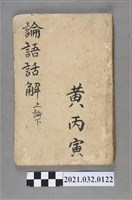 論語話解上論下
黃丙寅
2021.032.0122